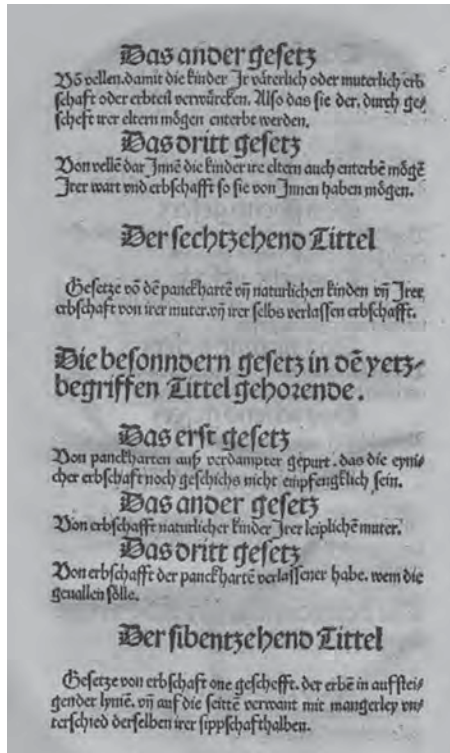 Das ander gesetz
Võ vellen. damit die kinder Jr väterlich oder muterlich erb
schaft oder erbteil verwürcken. Also das sie der. durch ge⸗
scheft irer eltern mögen enterbt werden.
Das dritt gesetz
Von vellẽ dar Jnnẽ die kinder ire eltern auch enterbẽ mögẽ
Jrer watt vnd erbschafft so sie von Jnnen haben mögen.
Der sechtzehend Tittel
Gesetze võ dẽ panckhartẽ vñ naturlichen kinden vñ Jrer
erbschaft von irer muter. vñ irer selbs verlassen erbschafft.
Die besonndern gesetz in dẽ yetz⸗
begriffen Tittel gehorende.
Das erst gesetz
Von panckharten auß verdampter gepurt. das die eyni⸗
cher erbschaft noch geschichs nicht empfengklich sein.
Das ander gesetz
Von erbschafft naturlicher kinder Jrer leiplichẽ muter.
Das dritt gesetz
Von erbschafft der panckhartẽ verlassener habe. wem die
geuallen sölle.
Der sibentzehend Tittel
Gesetze von erbschaft one geschefft. der erbẽ in aufstei⸗
gender lyniẽ. vñ auf die seittẽ verwant mit mangerley vn⸗
terschied derselben irer sippschafthalben.